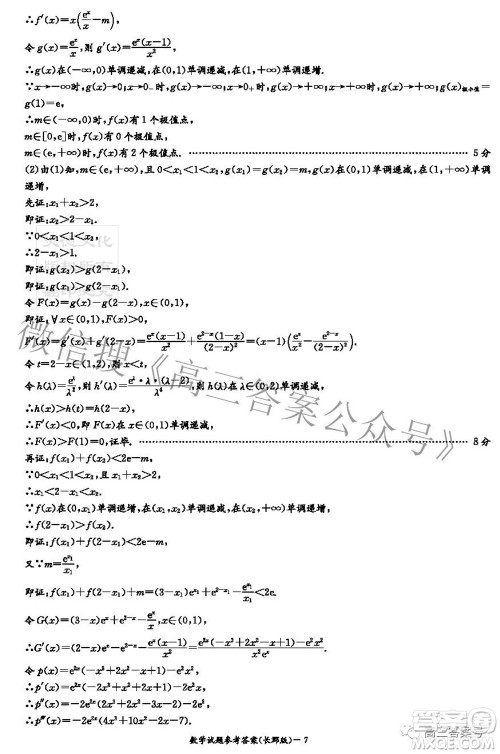 ∴f′(x)=x(e^x/x−m),
令 g(x)=e^x/x,则 g′(x)=e^x(x−1)/x²,
∴g(x)在(−∞,0)单调递减,在(0,1)单调递减,在(1,+∞)单调递增.
∵x→−∞时,g(x)→0;x→0₋时,g(x)→−∞;x→0₊时,g(x)→+∞;x→+∞时,g(x)→+∞;g(x)极小值=
g(1)=e,
∴m∈(−∞,0)时,f(x)有1个极值点,
m∈[0,e]时,f(x)有0个极值点,
m∈(e,+∞)时,f(x)有2个极值点. 5分
(2)由(1)知,m∈(e,+∞),且0<x₁<1<x₂,g(x₁)=g(x₂)=m,g(x)在(0,1)单调递减,在(1,+∞)单调
递增,
先证:x₁+x₂>2,
即证:x₂>2−x₁.
∵0<x₁<1<x₂,
∴2−x₁>1.
即证:g(x₂)>g(2−x₁).
即证:g(x₁)>g(2−x₁).
令 F(x)=g(x)−g(2−x),x∈(0,1),
即证:∀x∈(0,1),F(x)>0.
F′(x)=g′(x)+g′(2−x)=e^x(x−1)/x²+e^(2−x)(1−x)/(2−x)²=(x−1)(e^x/x²−e^(2−x)/(2−x)²).
令 t=2−x∈(1,2),则 x<t,
令 h(λ)=e^λ/λ²,则 h′(λ)=e^λ•λ•(λ−2)/λ⁴,则 h(λ)在∈(0,2)单调递减,
∴h(x)>h(t)=h(2−x),
∴F′(x)<0,即 F(x)在(0,1)单调递减,
∴F(x)>F(1)=0,证毕. 8分
再证:f(x₁)+f(x₂)<2e−m,
∵0<x₁<1<x₂,且 x₁+x₂>2,
∴x₁<2−x₁<x₂.
∵f(x)在(0,x₁)单调递增,在(x₁,x₂)单调递减,在(x₂,+∞)单调递增,
∴f(2−x₁)>f(x₂).
即证:f(x₁)+f(2−x₁)<2e−m,
又∵m=e^x₁/x₁,
即证:f(x₁)+f(2−x₁)+m=(3−x₁)e^x₁+e^(2−x₁)−e^x₁/x₁<2e.
令 G(x)=(3−x)e^x+e^(2−x)−e^x/x,x∈(0,1),
∴G′(x)=(2−x)e^x−e^(2−x)−e^x(x−1)/x²=e^(2x)(−x³+2x²−x+1)−x²e²/x²e^x,
令 p(x)=e^(2x)(−x³+2x²−x+1)−x²e²,
∴p′(x)=e^(2x)(−2x³+x²+2x+1)−2xe²,
∴p″(x)=−2e²(2x³+2x²−3x−2)−2e²,
∴p‴(x)=−2e^(2x)(4x³+10x²−2x−7).
数学试题参考答案(长郡版)−7
微信搜《高三答案公众号》
高三答案号